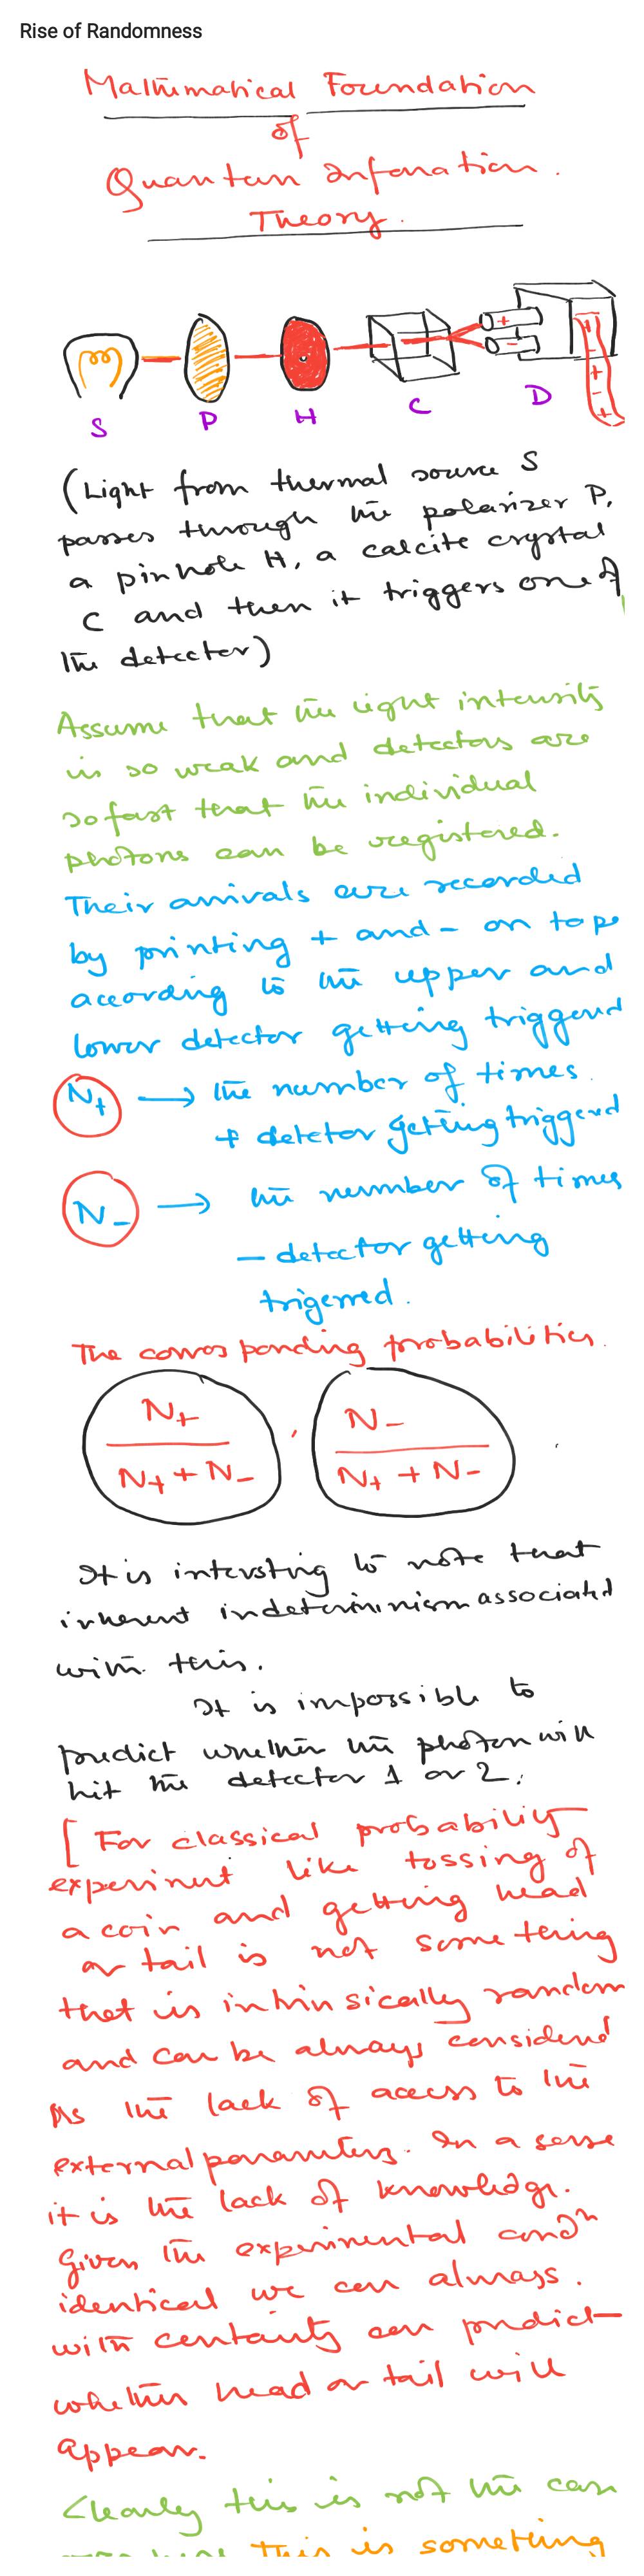 Rise of Randomness
Mathematical Foundation
of
Quantum Information
Theory.
+
-
+
-
+
-
+
S
P
H
C
D
(Light from thermal source S
passes through the polarizer P,
a pinhole H, a calcite crystal
C and then it triggers one of
the detector)
Assume that the light intensity
is so weak and detectors are
so fast that the individual
photons can be registered.
Their arrivals are recorded
by printing + and - on tape
according to the upper and
lower detector getting triggered
N+ → the number of times
+ detetor getting triggered
N- → the number of times
- detector getting
trigerred.
The corresponding probabilities.
N+ / N+ + N- , N- / N+ + N- .
It is intersting to note that
inherent indeterminism associated
with this.
It is impossible to
predict whether the photon will
hit the detector 1 or 2.
[ For classical probability
experiment like tossing of
a coin and getting head
or tail is not something
that is intrinsically random
and can be always considered
As the lack of access to the
external parameters. In a sense
it is the lack of knowledge.
Given the experimental condn
identical we can always.
with certainty can predict
whether head or tail will
appear.
Clearly this is not the case
This is something